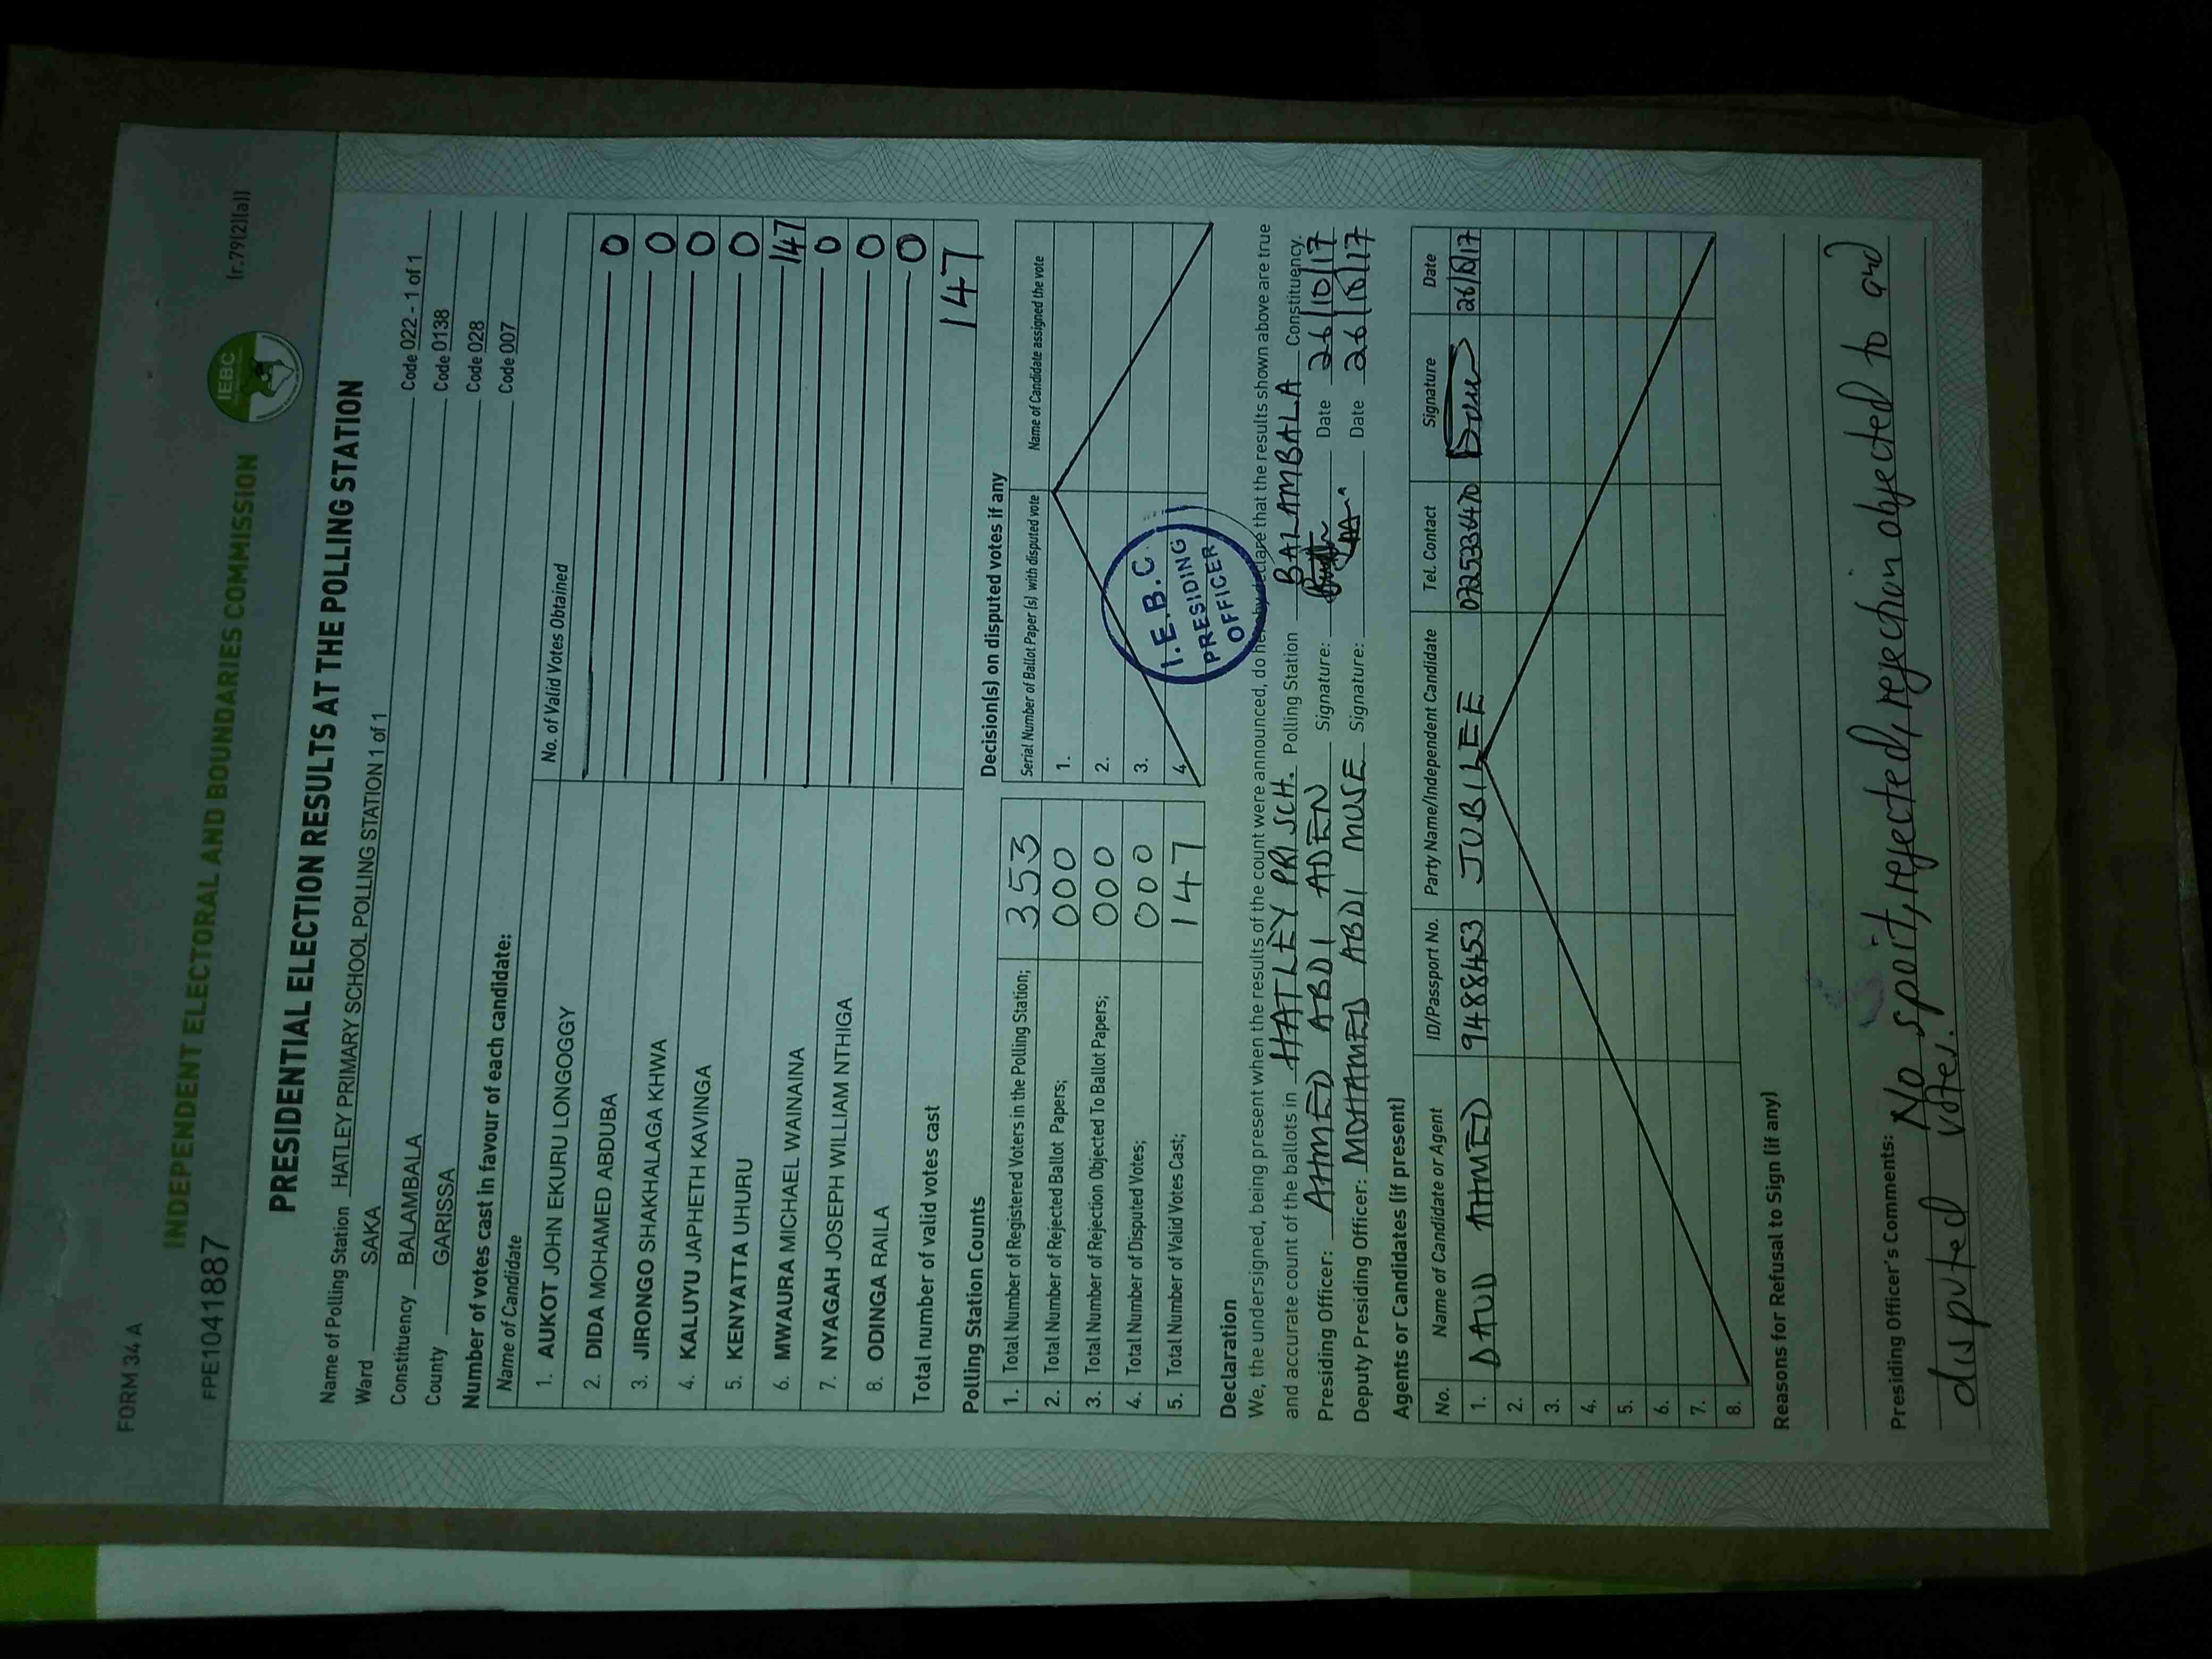 FORM 34 A
(r.79(2)(a))
FPE1041887
INDEPENDENT ELECTORAL AND BOUNDARIES COMMISSION
IEBC
PRESIDENTIAL ELECTION RESULTS AT THE POLLING STATION
Name of Polling Station HATLEY PRIMARY SCHOOL POLLING STATION 1 of 1 Code 022 - 1 of 1
Ward SAKA Code 0138
Constituency BALAMBALA Code 028
County GARISSA Code 007
Number of votes cast in favour of each candidate:
Name of Candidate No. of Valid Votes Obtained
1. AUKOT JOHN EKURU LONGOGGY 0
2. DIDA MOHAMED ABDUBA 0
3. JIRONGO SHAKHALAGA KHWA 0
4. KALUYU JAPHETH KAVINGA 0
5. KENYATTA UHURU 147
6. MWAURA MICHAEL WAINAINA 0
7. NYAGAH JOSEPH WILLIAM NTHIGA 0
8. ODINGA RAILA 0
Total number of valid votes cast 147
Polling Station Counts
1. Total Number of Registered Voters in the Polling Station; 353
2. Total Number of Rejected Ballot Papers; 000
3. Total Number of Rejection Objected To Ballot Papers; 000
4. Total Number of Disputed Votes; 000
5. Total Number of Valid Votes Cast; 147
Decision(s) on disputed votes if any
Serial Number of Ballot Paper (s) with disputed vote Name of Candidate assigned the vote
1.
2.
3.
4.
I.E.B.C
PRESIDING
OFFICER
Declaration
We, the undersigned, being present when the results of the count were announced, do hereby declare that the results shown above are true
and accurate count of the ballots in HATLEY PRI SCH. Polling Station BALAMBALA Constituency.
Presiding Officer: AHMED ABDI ADEN Signature: Date 26/10/17
Deputy Presiding Officer: MOHAMED ABDI MUSE Signature: Date 26/10/17
Agents or Candidates (if present)
No. Name of Candidate or Agent ID/Passport No. Party Name/Independent Candidate Tel. Contact Signature Date
1. DAUD AHMED 9488453 JUBILEE 0725336470 26/10/17
2.
3.
4.
5.
6.
7.
8.
Reasons for Refusal to Sign (if any)
Presiding Officer's Comments: No spoit, rejected, rejection objected to and
disputed votes.